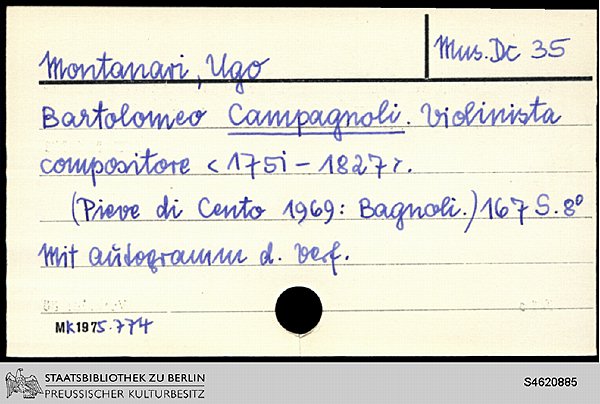 Montanari, Ugo
Mus. Dc 35
Bartolomeo Campagnoli. Violinista
compositore <1751-1827>.
(Pieve di Cento 1969: Bagnoli.) 167 S. 8°
Mit Autogramm d. Verf.
MK1975.774
STAATSBIBLIOTHEK ZU BERLIN
PREUSSISCHER KULTURBESITZ
S4620885